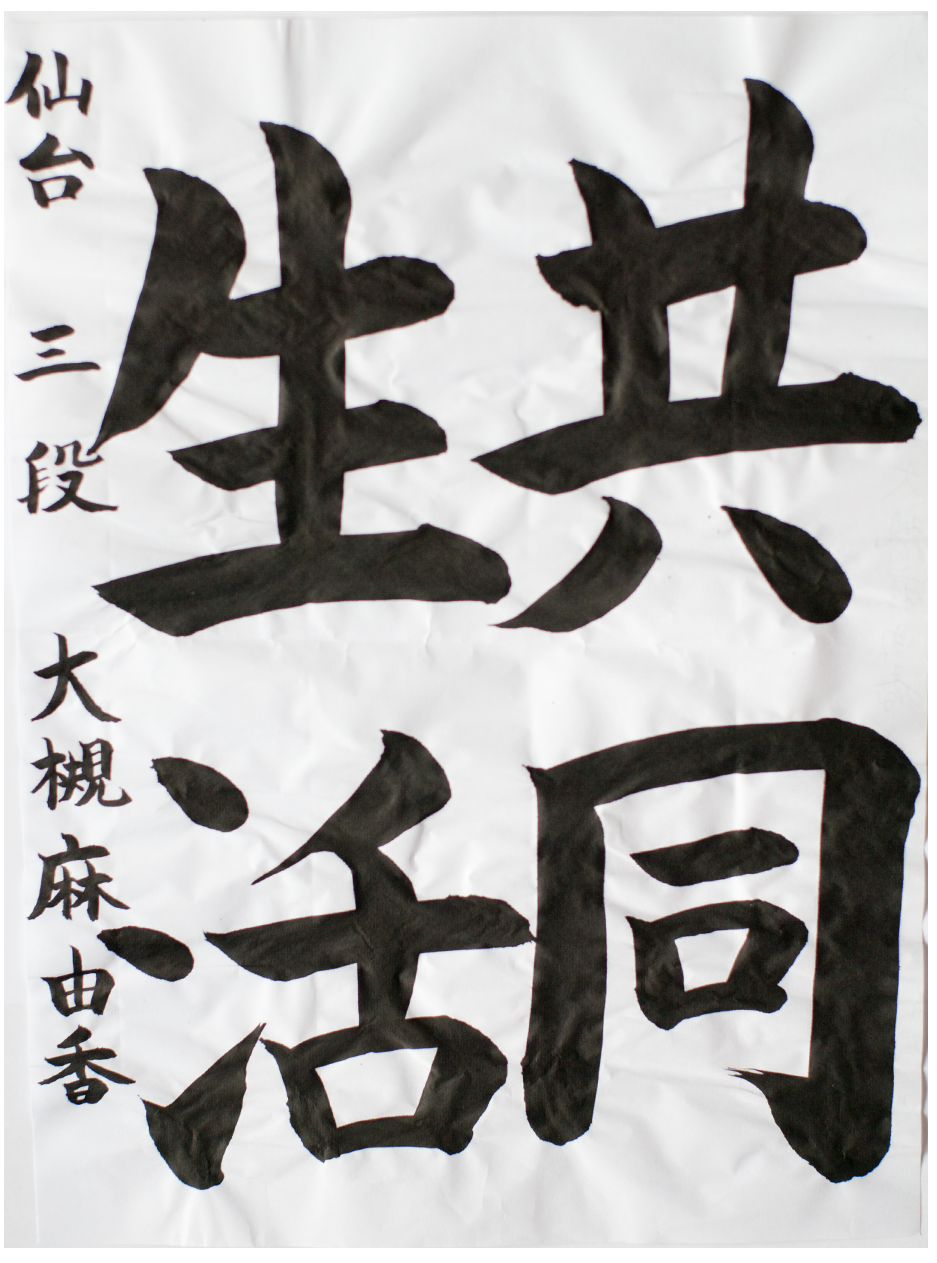 共同
生活
仙台 三段 大槻麻由香